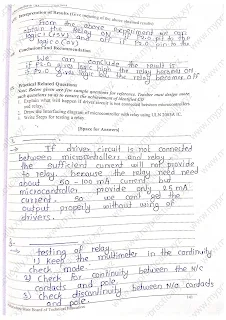 Interpretation of Results (Give meaning of the above obtained results)
From the above experiment we can
train the relay ON if P2.0 pin to the
logic 1 (5V) and off if P2.0 pin to the
logic 0 (0V)
Conclusions and Recommendation
We can conclude the result is
if P2.0 give logic high the relay becomes ON
if P2.0 give logic 0 the relay becomes OFF
Practical Related Questions
Note: Below given are few sample questions for reference. Teacher must design more
such questions so as to ensure the achievement of identified CO
1. Explain what will happen if driver circuit is not connected between microcontrollers
and relay.
2. Draw the Interfacing diagram of microcontroller with relay using ULN 2003A IC.
3. Write Steps for testing a relay.
[Space for Answer]
1.
→ If driver circuit is not connected
between microcontrollers and relay
the sufficient current will not provide
to relay. because the relay need need
about 50 - 100 mA current but
microcontroller provide only 25 mA
current. so we can't get the
output properly without using of
drivers.
3.
→ testing of relay
1) keep the multimeter in the continuity
check mode
2) Check for continuity between the N/c
contacts and pole
3) check discontinuity between N/o contacts
and pole.
State Board of Technical Education